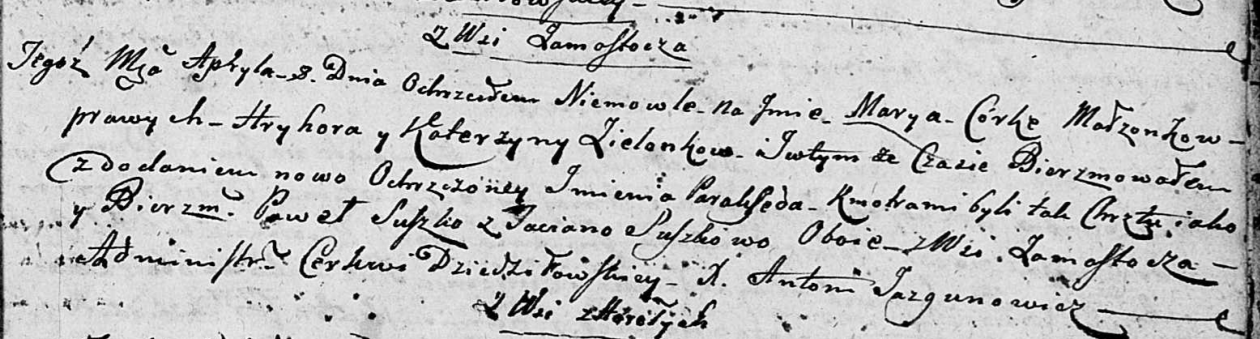 z Wsi Zamostocza
Tegoż Mżą Apryla 8. Dnia Ochrzciłem Niemowle na Jmie Marya Corkę Małzonkow
prawych Hryhora y Katerzyny Zielonkow. I w tym że Czasie Bierzmowałem
z dodaniem nowo Ochrzczoney Imienia Paraksęda Kmotrami byli tak Chrztu, iako
y Bierzm. Paweł Suszko z Taciano Suszkowo Oboie z Wsi Zamostocza
Administr. Cerkwi Dziedziłowskiey X. Antoni Jazgunowicz
z Wsi